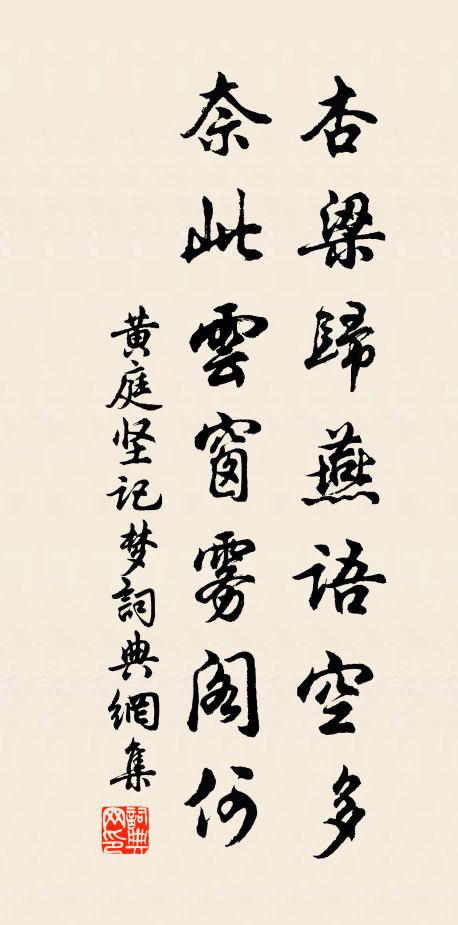 杏梁歸燕語空多
奈此雲窗雾阁何
黄庭坚记梦詞典網集
詞典网印